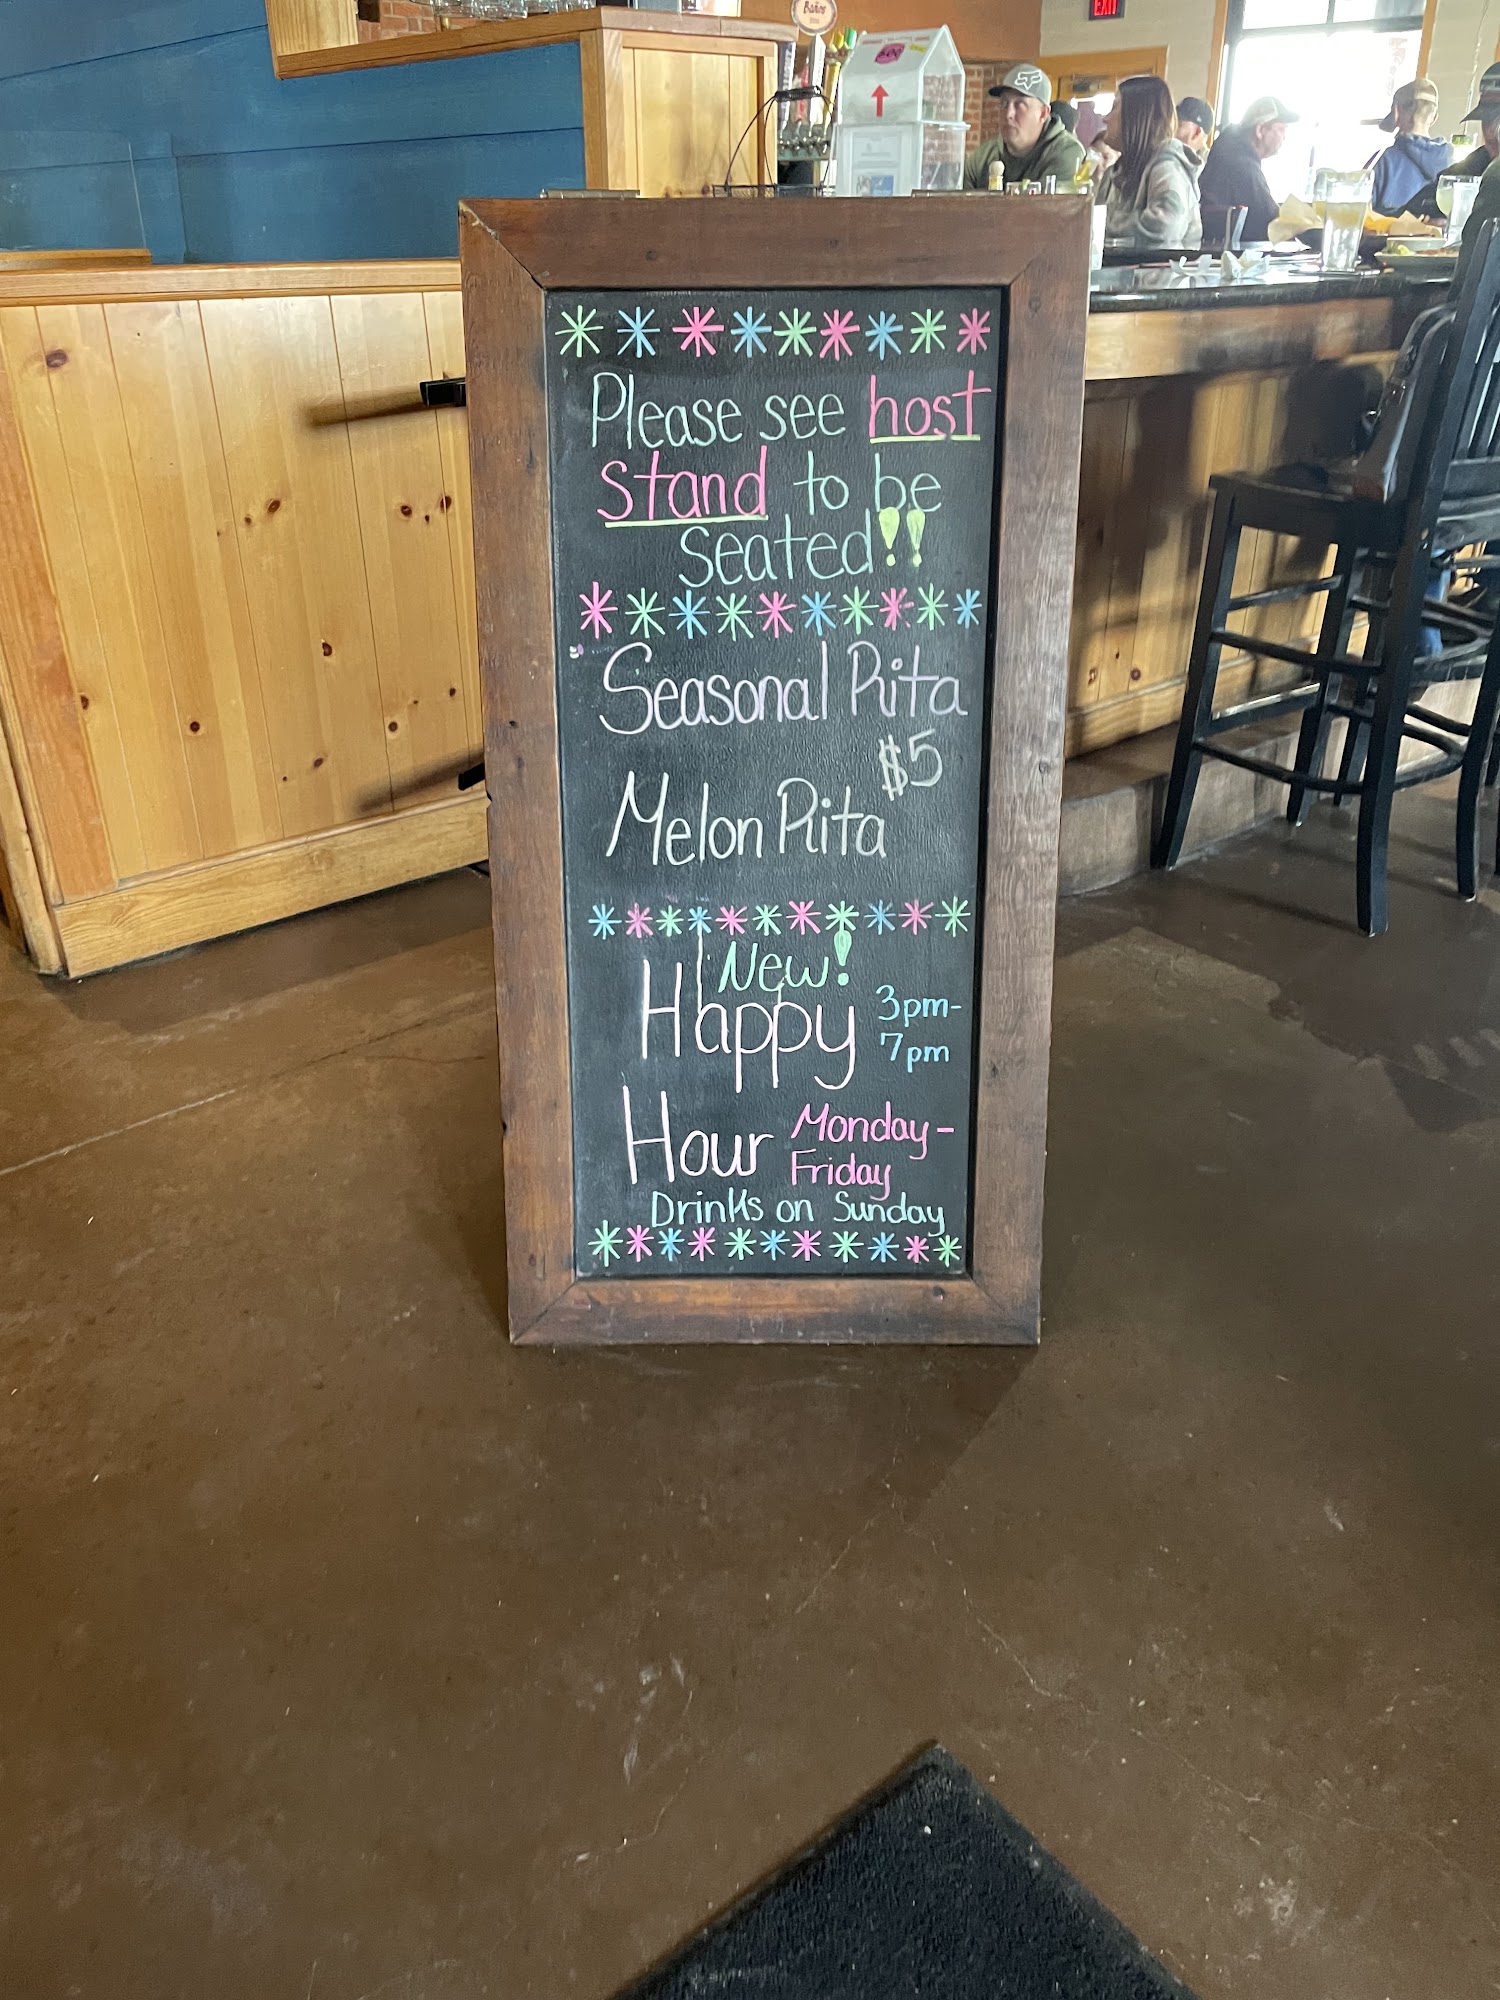 EXIT
Baños
Please see host
stand to be
seated!!
Seasonal Rita
$5
Melon Rita
New!
Happy 3pm-
7pm
Hour Monday-
Friday
Drinks on Sunday